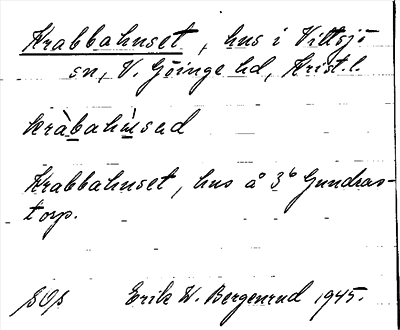 Krabbahuset, hus i Vittsjö
sn, V. Göinge hd, Krist. l.
kràbahùsəd
Krabbahuset, hus å 3⁶ Gundras-
torp.
SOS Erik W. Bergenrud 1945.